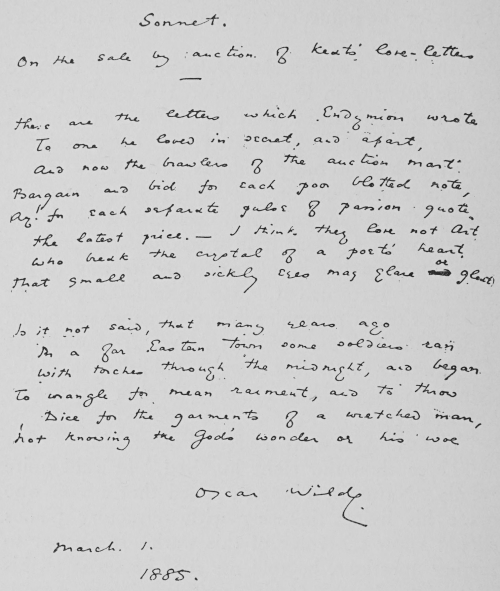 Sonnet.
On the sale by auction of Keats' love-letters
These are the letters which Endymion wrote
To one he loved in secret, and apart,
And now the brawlers of the auction mart
Bargain and bid for each poor blotted note,
Ay! for each separate pulse of passion quote
The latest price. — I think they love not Art
Who break the crystal of a poet's heart
That small and sickly eyes may glare or gloat.
Is it not said, that many years ago
In a far Eastern Town some soldiers ran
With torches through the midnight, and began
To wrangle for mean raiment, and to throw
Dice for the garments of a wretched man,
Not knowing the God's wonder or his woe
Oscar Wilde
March. 1.
1885.